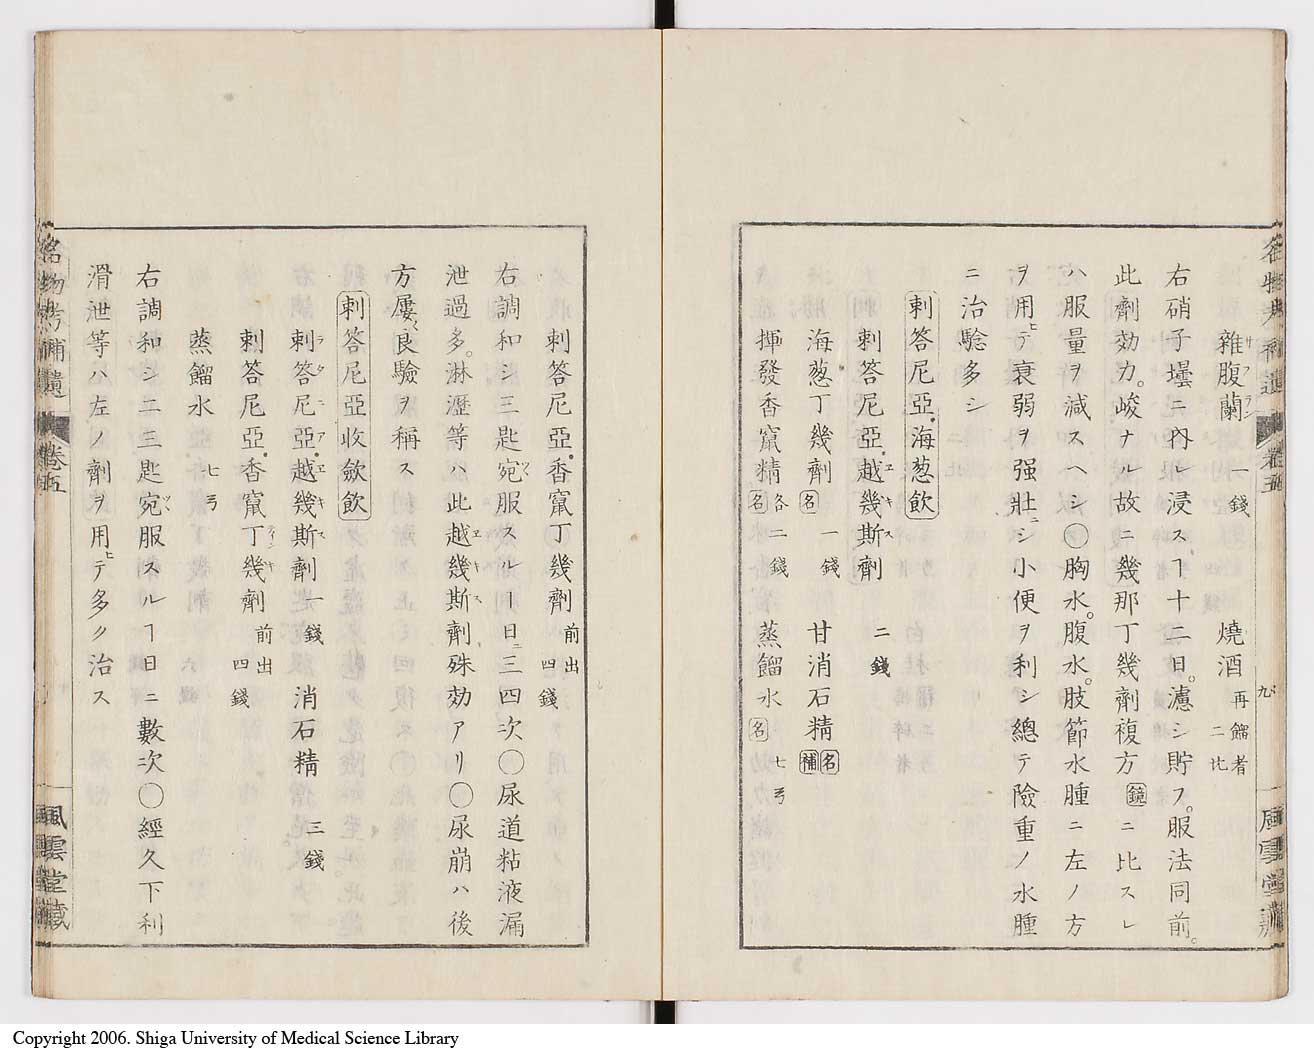 雜腹蘭 一錢 燒酒 再餾者 二比
右硝子壜ニ內レ浸スヿ十二日。濾シ貯フ。服法同前。
此劑効力。峻ナル故ニ幾那丁幾劑複方鏡ニ比スレ
ハ服量ヲ減スヘシ〇胸水。腹水。肢節水腫ニ左ノ方
ヲ用ヒテ衰弱ヲ强壯ニシ小便ヲ利シ總テ險重ノ水腫
ニ治驗多シ
剌答尼亞海葱飲
剌答尼亞越幾斯劑 二錢
海葱丁幾劑名 一錢 甘消石精名補
揮發香竄精名 各二錢 蒸餾水名 七弓
名物考補遺 卷五 九 風雲堂藏
剌答尼亞香竄丁幾劑 前出 四錢
右調和シ三匙宛服スルヿ日ニ三四次〇尿道粘液漏
泄過多。淋瀝等ハ此越幾斯劑殊効アリ〇尿崩ハ後
方屢良驗ヲ稱ス
剌答尼亞收斂飲
剌答尼亞越幾斯劑 一錢 消石精 三錢
剌答尼亞香竄丁幾劑 前出 四錢
蒸餾水 七弓
右調和シ二三匙宛服スルヿ日ニ數次〇經久下利
滑泄等ハ左ノ劑ヲ用ヒテ多ク治ス
名物考補遺 卷五 風雲堂藏
Copyright 2006. Shiga University of Medical Science Library